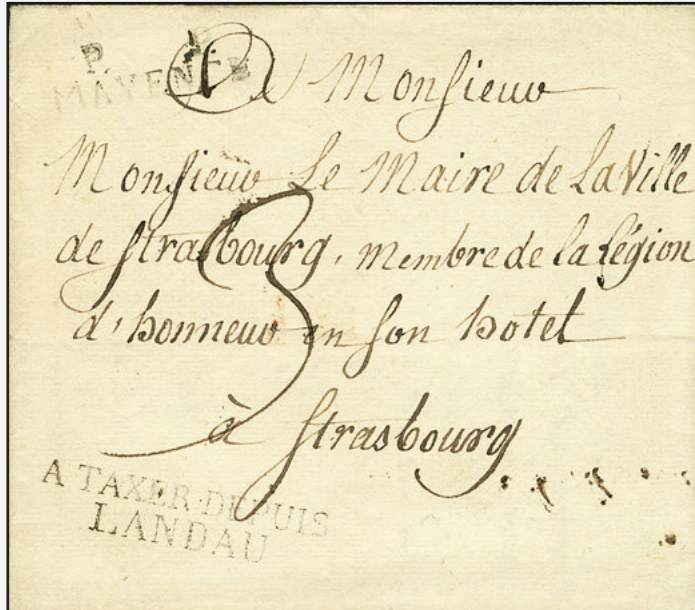 P. P.
MAYENCE
A Monsieur
Monsieur Le Maire de La Ville
de Strasbourg, membre de la Légion
d'honneur en son hotel
à Strasbourg
3
A TAXER DEPUIS
LANDAU